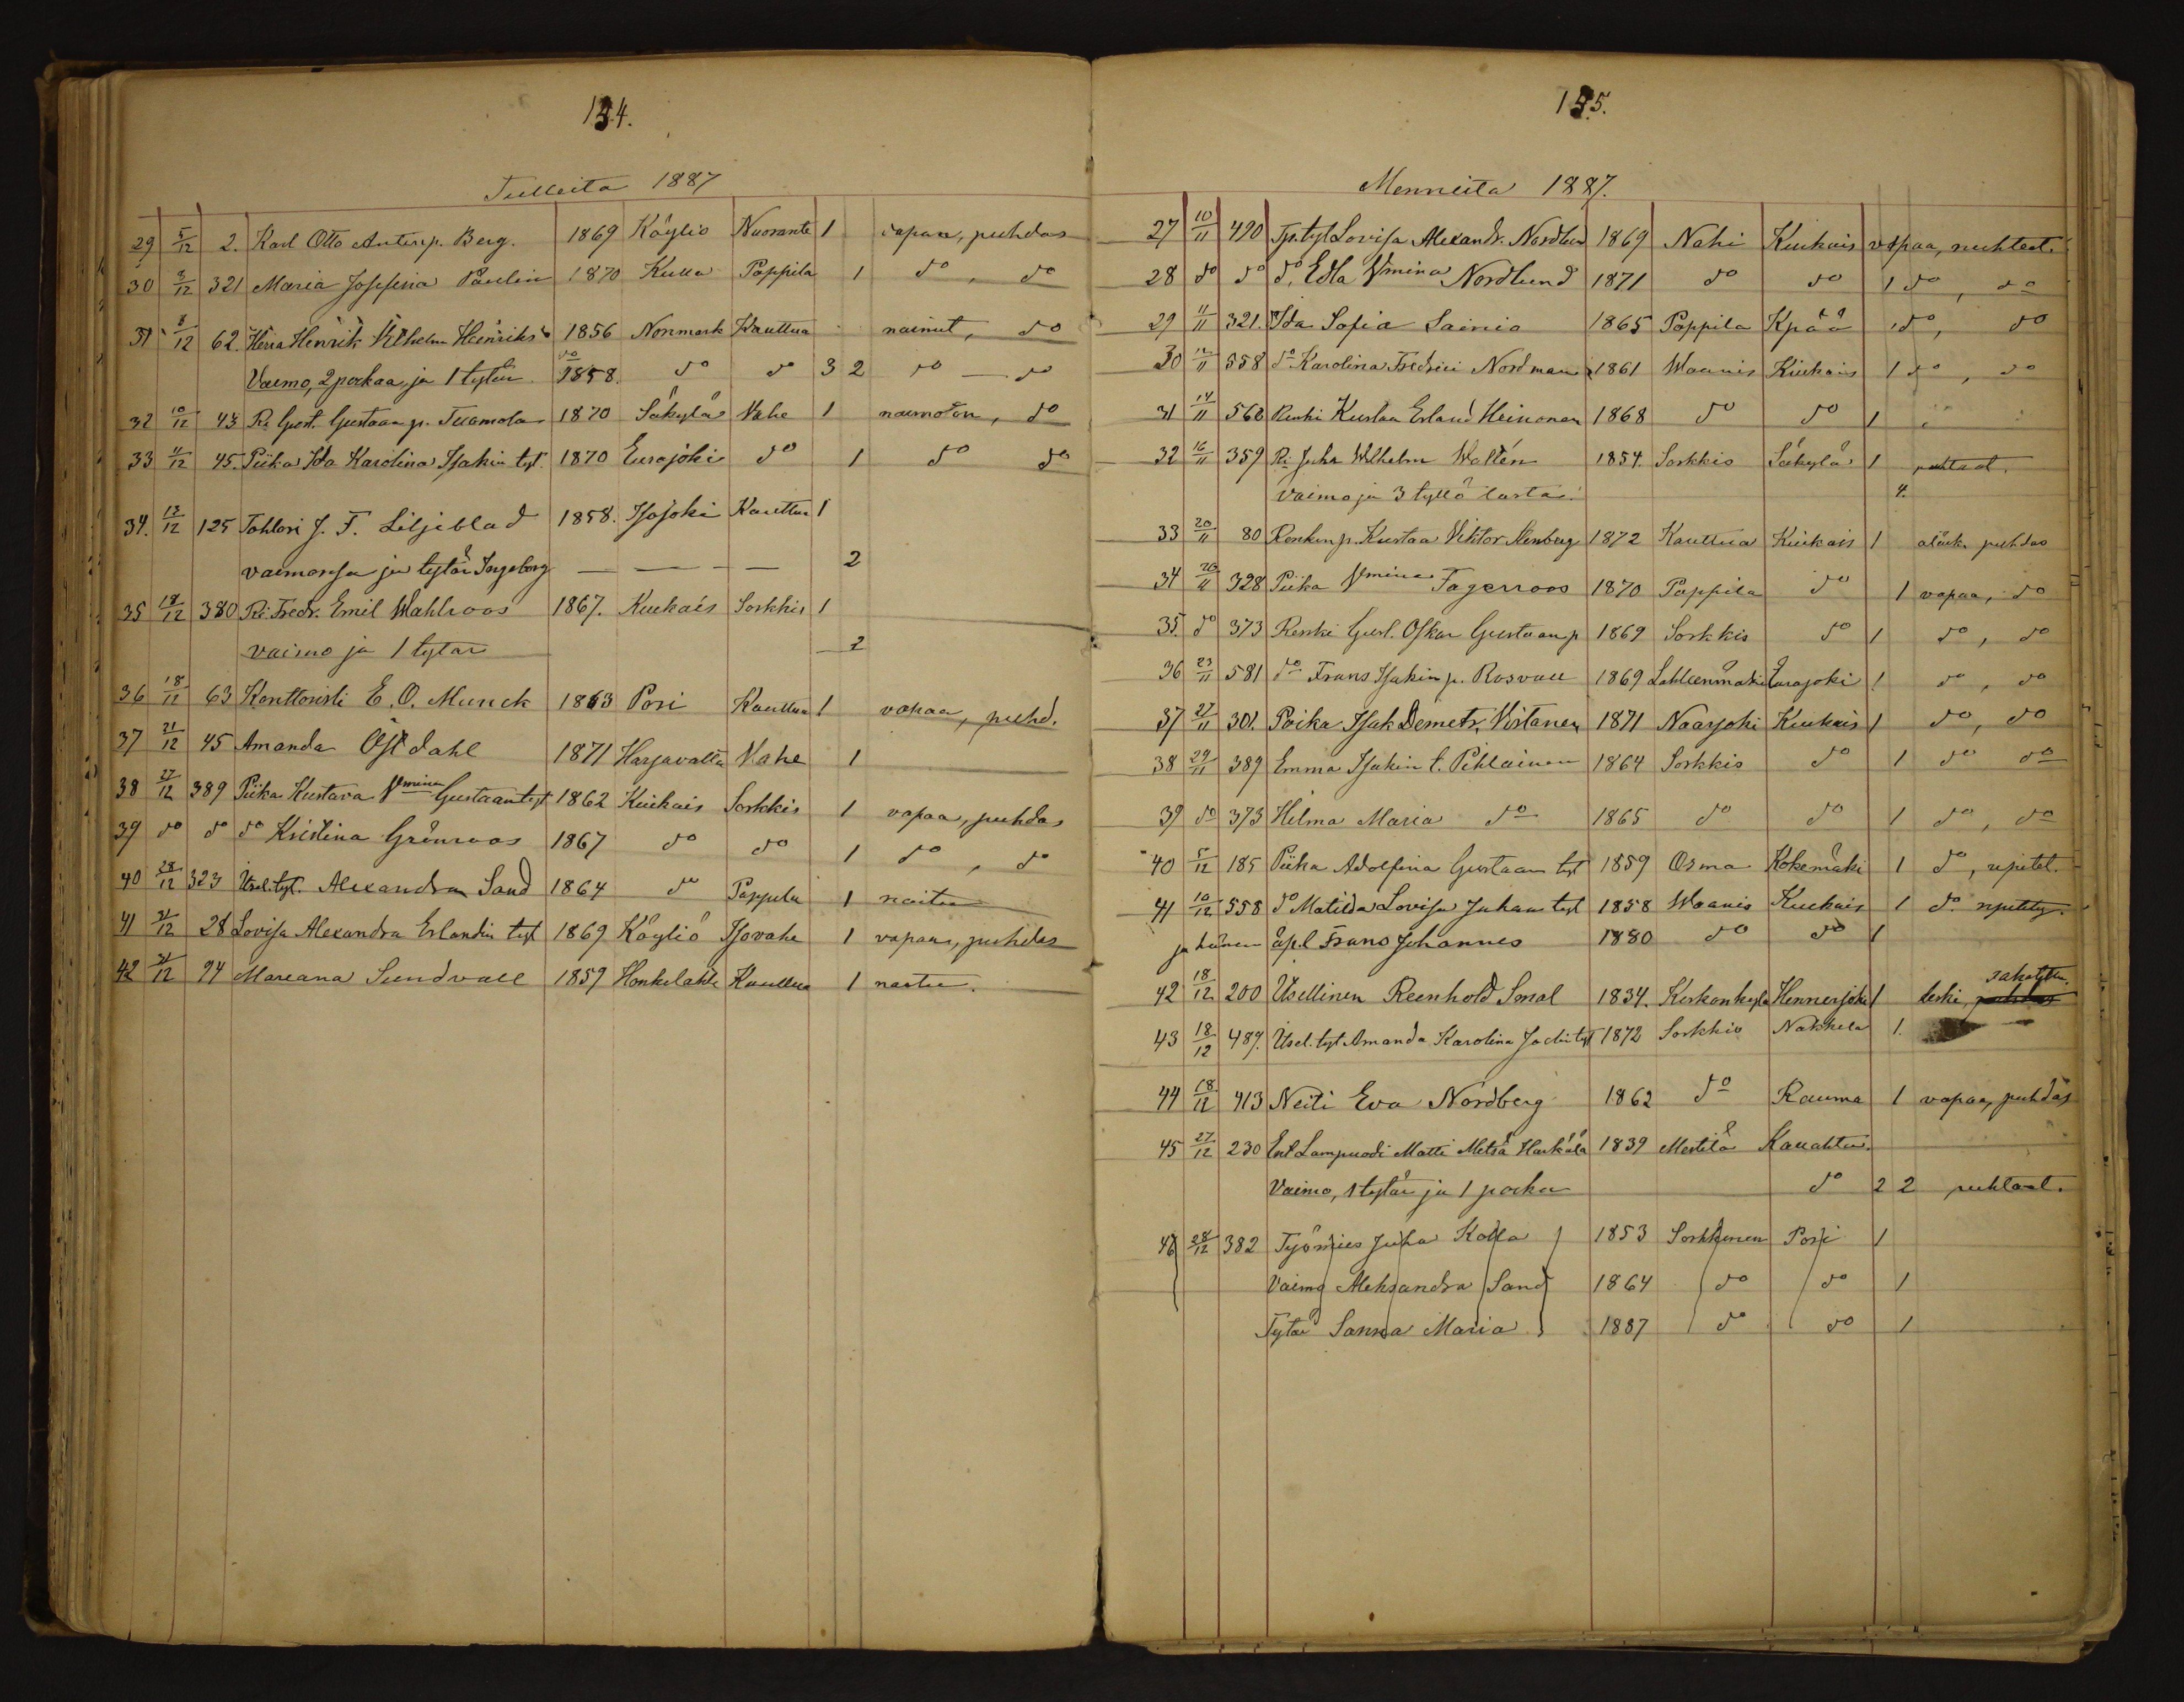 134.
Tulleita 1887
29 5/12 2. Karl Otto Anterinp. Berg. 1869 Köyliö Nuoranta 1 vapaa, puhdas
30 8/12 321 Maria Josefina Paulin 1870 Kulla Pappila 1 do, do
31 8/12 62. Herra Henrik Vilhelm Heinriks 1856 Norrmark Kauttua nainut, do
Vaimo, 2 poikaa, ja 1 tytär 1858. do do 3 2 do — do
32 10/12 43 Ri Gust. Gustaan p. Tuomola 1870 Säkylä Vahe 1 naimaton, do
33 11/12 45. Piika Ida Karolina Isakin tyt. 1870 Eurajoki do 1 do do
34. 13/12 125 Tohtori J. F. Liljeblad 1858. Isojoki Kauttua 1
vaimonsa ja tytär Ingeborg — — — — 2
35 18/12 380 Ri. Fredr. Emil Wahlroos 1867. Kiukais Sorkkis 1
vaimo ja 1 tytar 2
36 18/12 63 Konttoristi E. O. Munck 1863 Pori Kauttua 1 vapaa, puhd.
37 21/12 45 Amanda Östdahl 1871 Harjavalta Vahe 1
38 27/12 389 Piika Kustava Vmina Gustaantyt 1862 Kiukais Sorkkis 1 vapaa, puhdas
39 do do do Kristina Grönroos 1867 do do 1 do, do
40 28/12 323 Itsel. tyt. Alexandra Sand 1864 do Pappila 1 naitu
41 31/12 28 Lovisa Alexandra Erlandin tyt 1869 Köyliö Isovahe 1 vapaa, puhdas
42 31/12 94 Mareana Sundvall 1859 Honkelahti Kauttua 1 naitu.
135.
Menneitä 1887.
27 10/11 490 Tp. tyt Lovisa Alexandr. Nordlund 1869 Nahi Kiukais vapaa, puhteet.
28 do do do, Edla Vmina Nordlund 1871 do do 1 do, do
29 11/11 321. Ida Sofia Sainio 1865 Pappila Kpää 1 do, do
30 12/11 558 do Karolina Fredrici Nordman 1861 Waanis Kiukais 1 do, do
31 14/11 568 Renki Kustaa Erland Heinonen 1868 do do 1
32 16/11 359 Ri Juha Wilhelm Wallén 1854. Sorkkis Säkylä 1 puhteet.
vaimo ja 3 tyttö lasta. 4.
33 20/11 80 Renkin p. Kustaa Viktor Stenberg 1872 Kauttua Kiukais 1 aläik. puhdas
34 20/11 328 Piika Vmina Fagerroos 1870 Pappila do 1 vapaa, do
35. do 373 Renki Gust. Oskar Gustaanp 1869 Sorkkis do 1 do, do
36 23/11 581 do Frans Isakin p. Rosvall 1869 Lähteenmäki Eurajoki 1 do, do
37 27/11 301. Poika Isak Demetr. Virtanen 1871 Naarjoki Kiukais 1 do, do
38 29/11 389 Emma Isakin t. Pihlainen 1864 Sorkkis do 1 do do
39 do 373 Helma Maria do 1865 do do 1 do, do
40 5/12 185 Piika Adolfina Gustaan tyt 1859 Osma Kokemäki 1 do, ripitet.
41 10/12 558 do Matilda Lovisa Juhan tyt 1858 Waanis Kiukais 1 do. ripitety.
ja hänen äpl. Frans Johannes 1880 do do 1
42 18/12 200 Itsellinen Reenhold Smal 1834. Kirkonkylä Hinnerjoki 1 leski, sakotettu.
43 18/12 489. Itsel. tyt Amanda Karolina tyt 1872 Sorkkis Nakkila 1.
44 18/12 413 Neiti Eva Nordberg 1862 do Rauma 1 vapaa, puhdas
45 27/12 230 Ent Lampuodi Matti Metsä Harkälä 1839 Mestilä Kauahtu.
Vaimo, 1 tytär ja 1 poika do 2 2 puhtaat.
46 28/12 382 Työmies Juha Kolla 1853 Sorkkinen Pori 1
Vaimo Aleksandra Sand 1864 do do 1
Tytär Sanna Maria 1887 do do 1